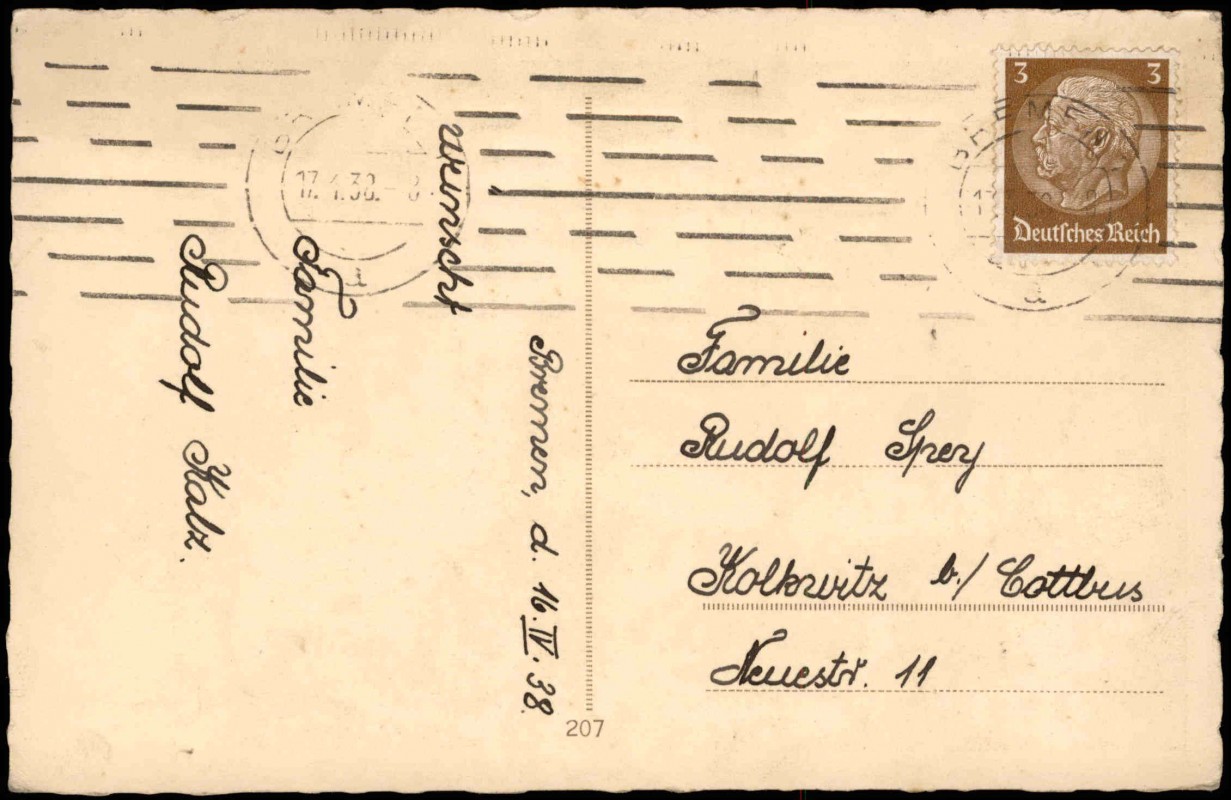 Bremen, d. 16.IV.38.
wünscht
Familie
Rudolf Kalz.
17.4.38.-8
BREMEN
3 3
Deutsches Reich
a
Familie
Rudolf Spey
Kolkwitz b./Cottbus
Neuestr. 11
207